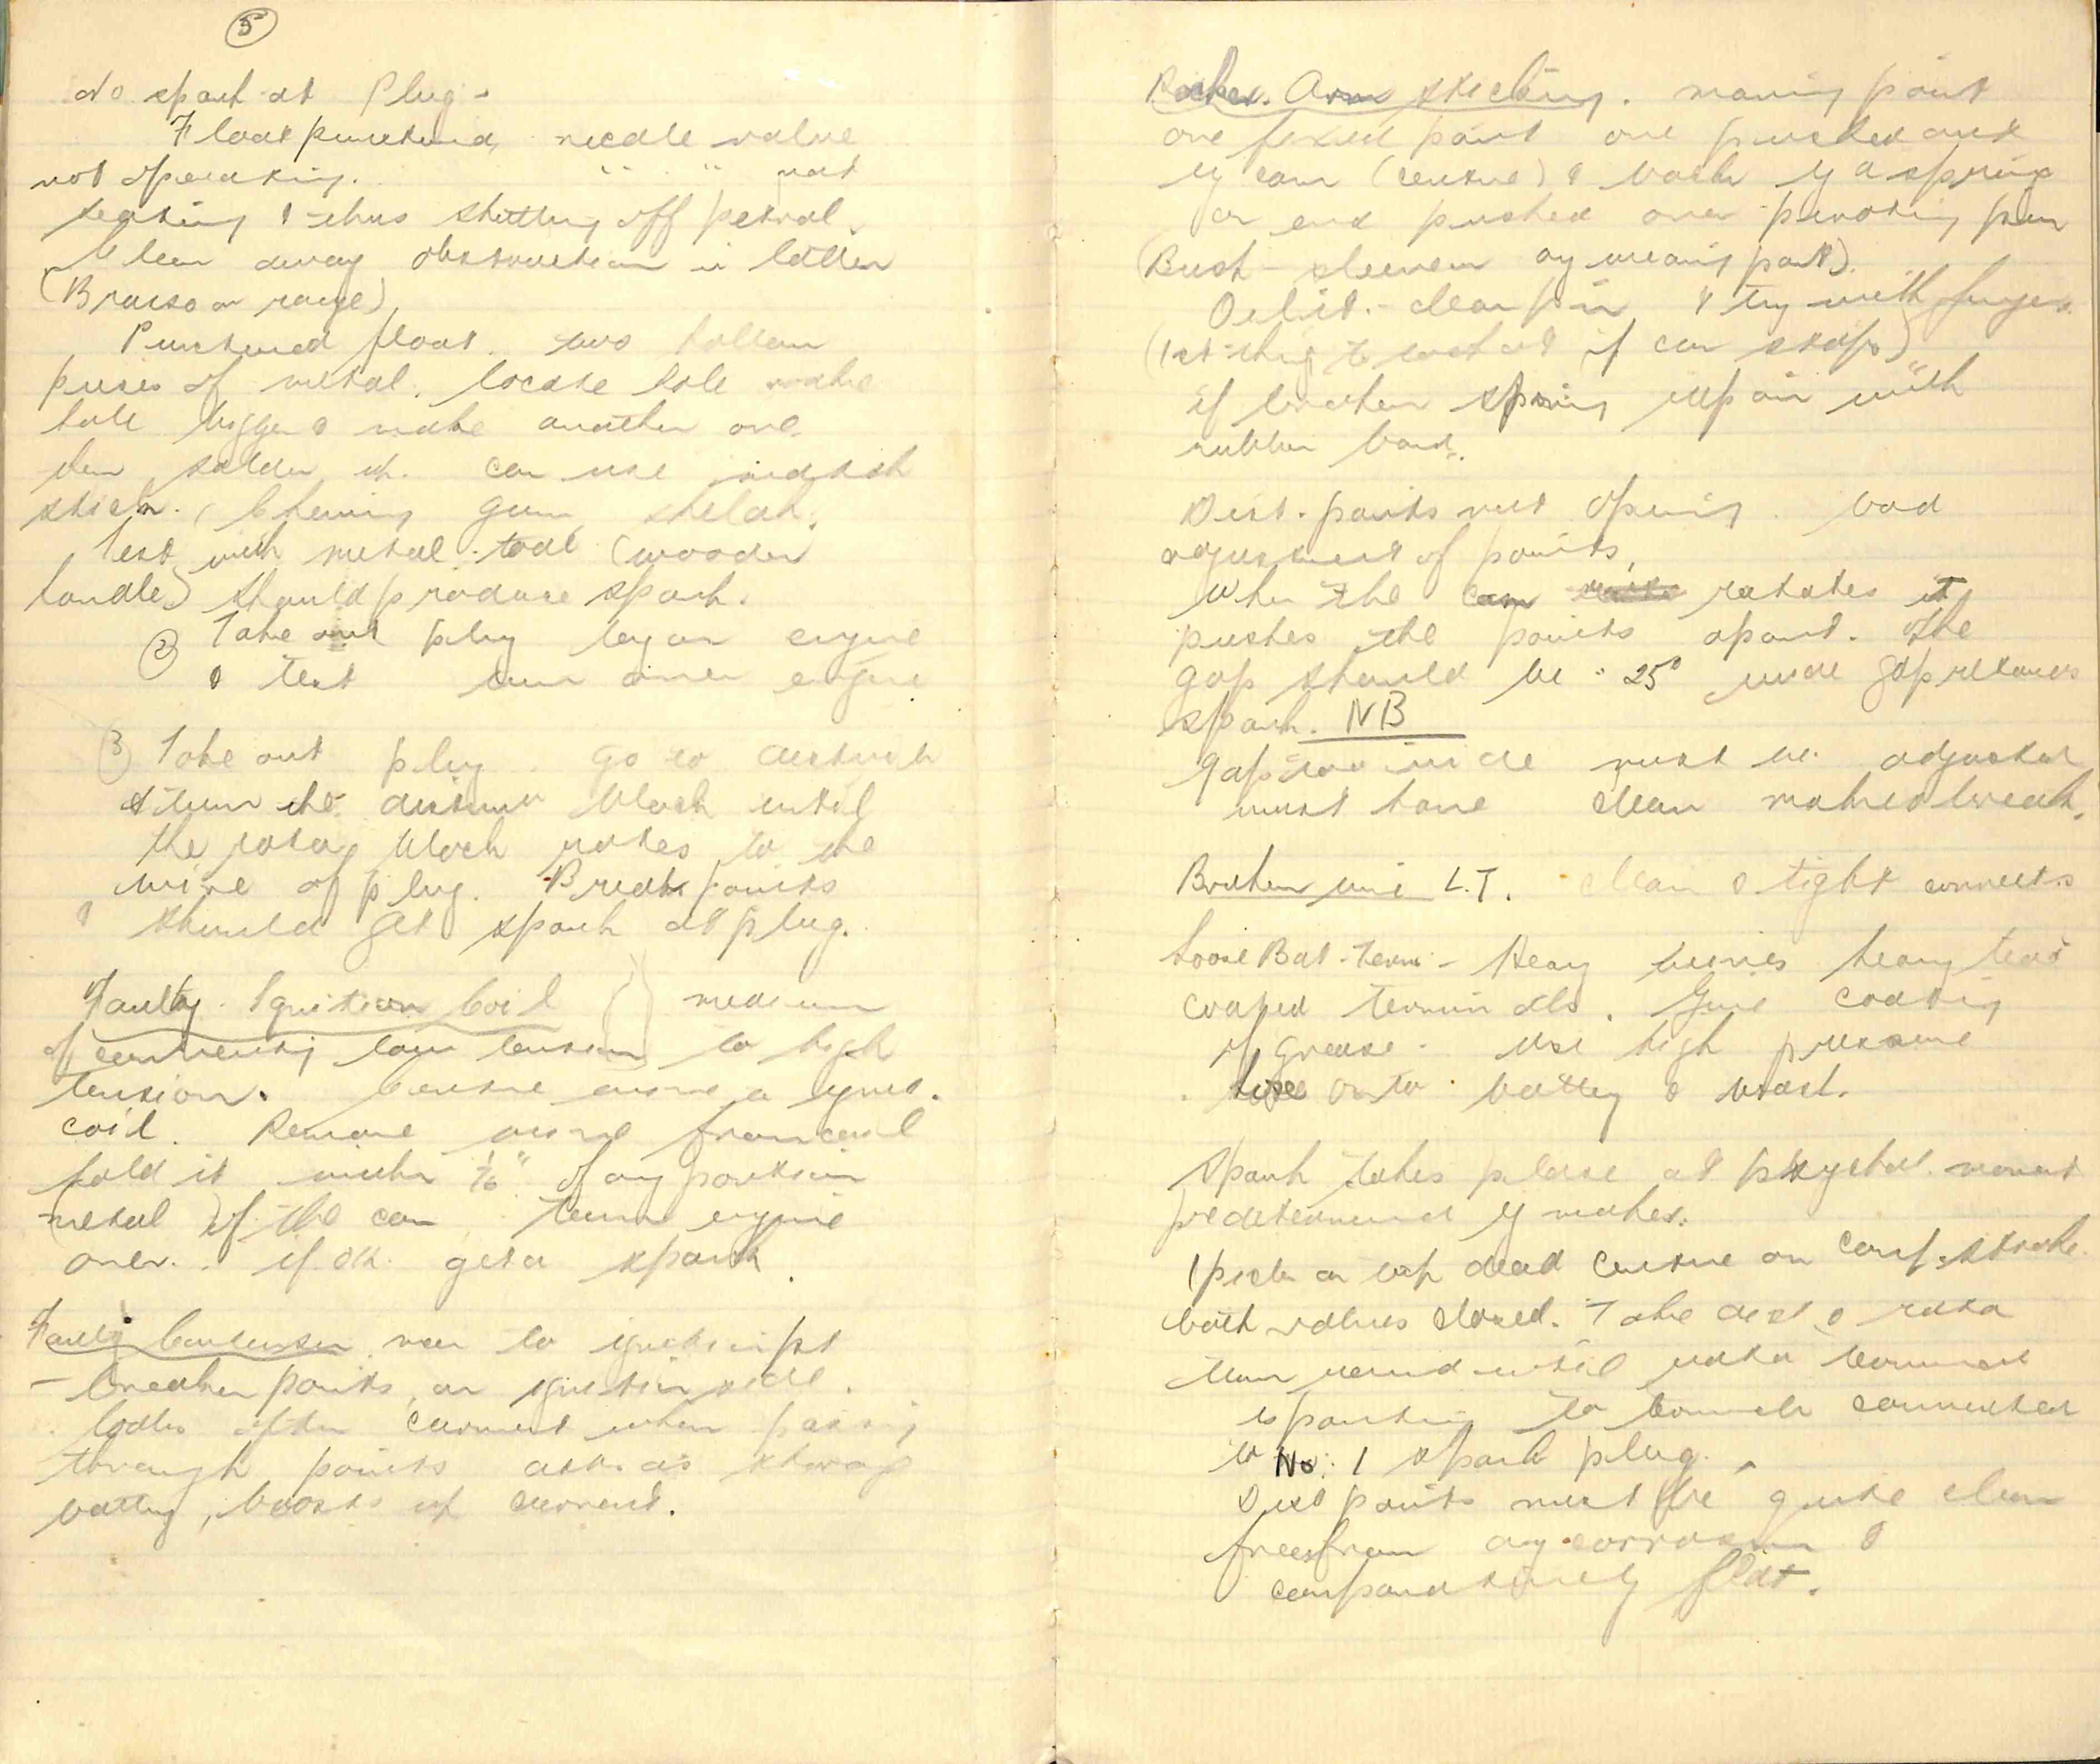 5
No spark at Plug -
Float punctured, needle valve
not operating. " " not
seating & thus shutting off petrol.
Clean away obstruction in latter
(Brasso or rouge)
Punctured float. two hollow
pieces of metal. locate hole make
hole bigger & make another one.
then solder up. can use match
stick, Chewing gum, shelac.
Test with metal tool (wooden
handle) should produce spark.
(2) Take out plug lay on engine
& test turn over engine
(3) Take out plug. go to
& turn the block until
the rotary block notes to the
wire of plug. Break points
& should get spark at plug.
Faulty Ignition Coil medium
of converting low tension to high
tension. Centre wire
coil. Remove wire from coil
hold it within 1/16" of any portion
metal of the car turn engine
over. if OK. get a spark.
Faulty Condenser near to
- breaker points, on ignition side.
after current when passing
through points acts as storage
battery, boosts up current.
Rocker Arm sticking. moving point
one fixed point one pushed out
by cam (centre) & back by a spring
or end pushed over pivoting pin
(Bush - sleeve on wearing part).
clean pin & try with fingers.
(1st thing to look at if car stops)
if broken spring repair with
rubber band.
Dist. points not opening. bad
adjustment of points,
When the cam rotates it
pushes the points apart. The
gap should be 25° wide gap retards
spark. NB
gap too wide must be adjusted
must have clean make & break.
Broken wire L.T. clean & tight connects
Loose Bat. Term - Heavy wires heavy lead
coated terminals. Give coating
of grease. Use high pressure
hose onto battery & wash.
Spark takes place at psychol. moment
predetermined by makers.
1 piston on top dead centre on comp. stroke
both valves closed. Take dist &
turn round until terminal
is pointing to connected
to No: 1 spark plug.
Dist points must be quite clean
free from any corrosion &
comparatively flat.